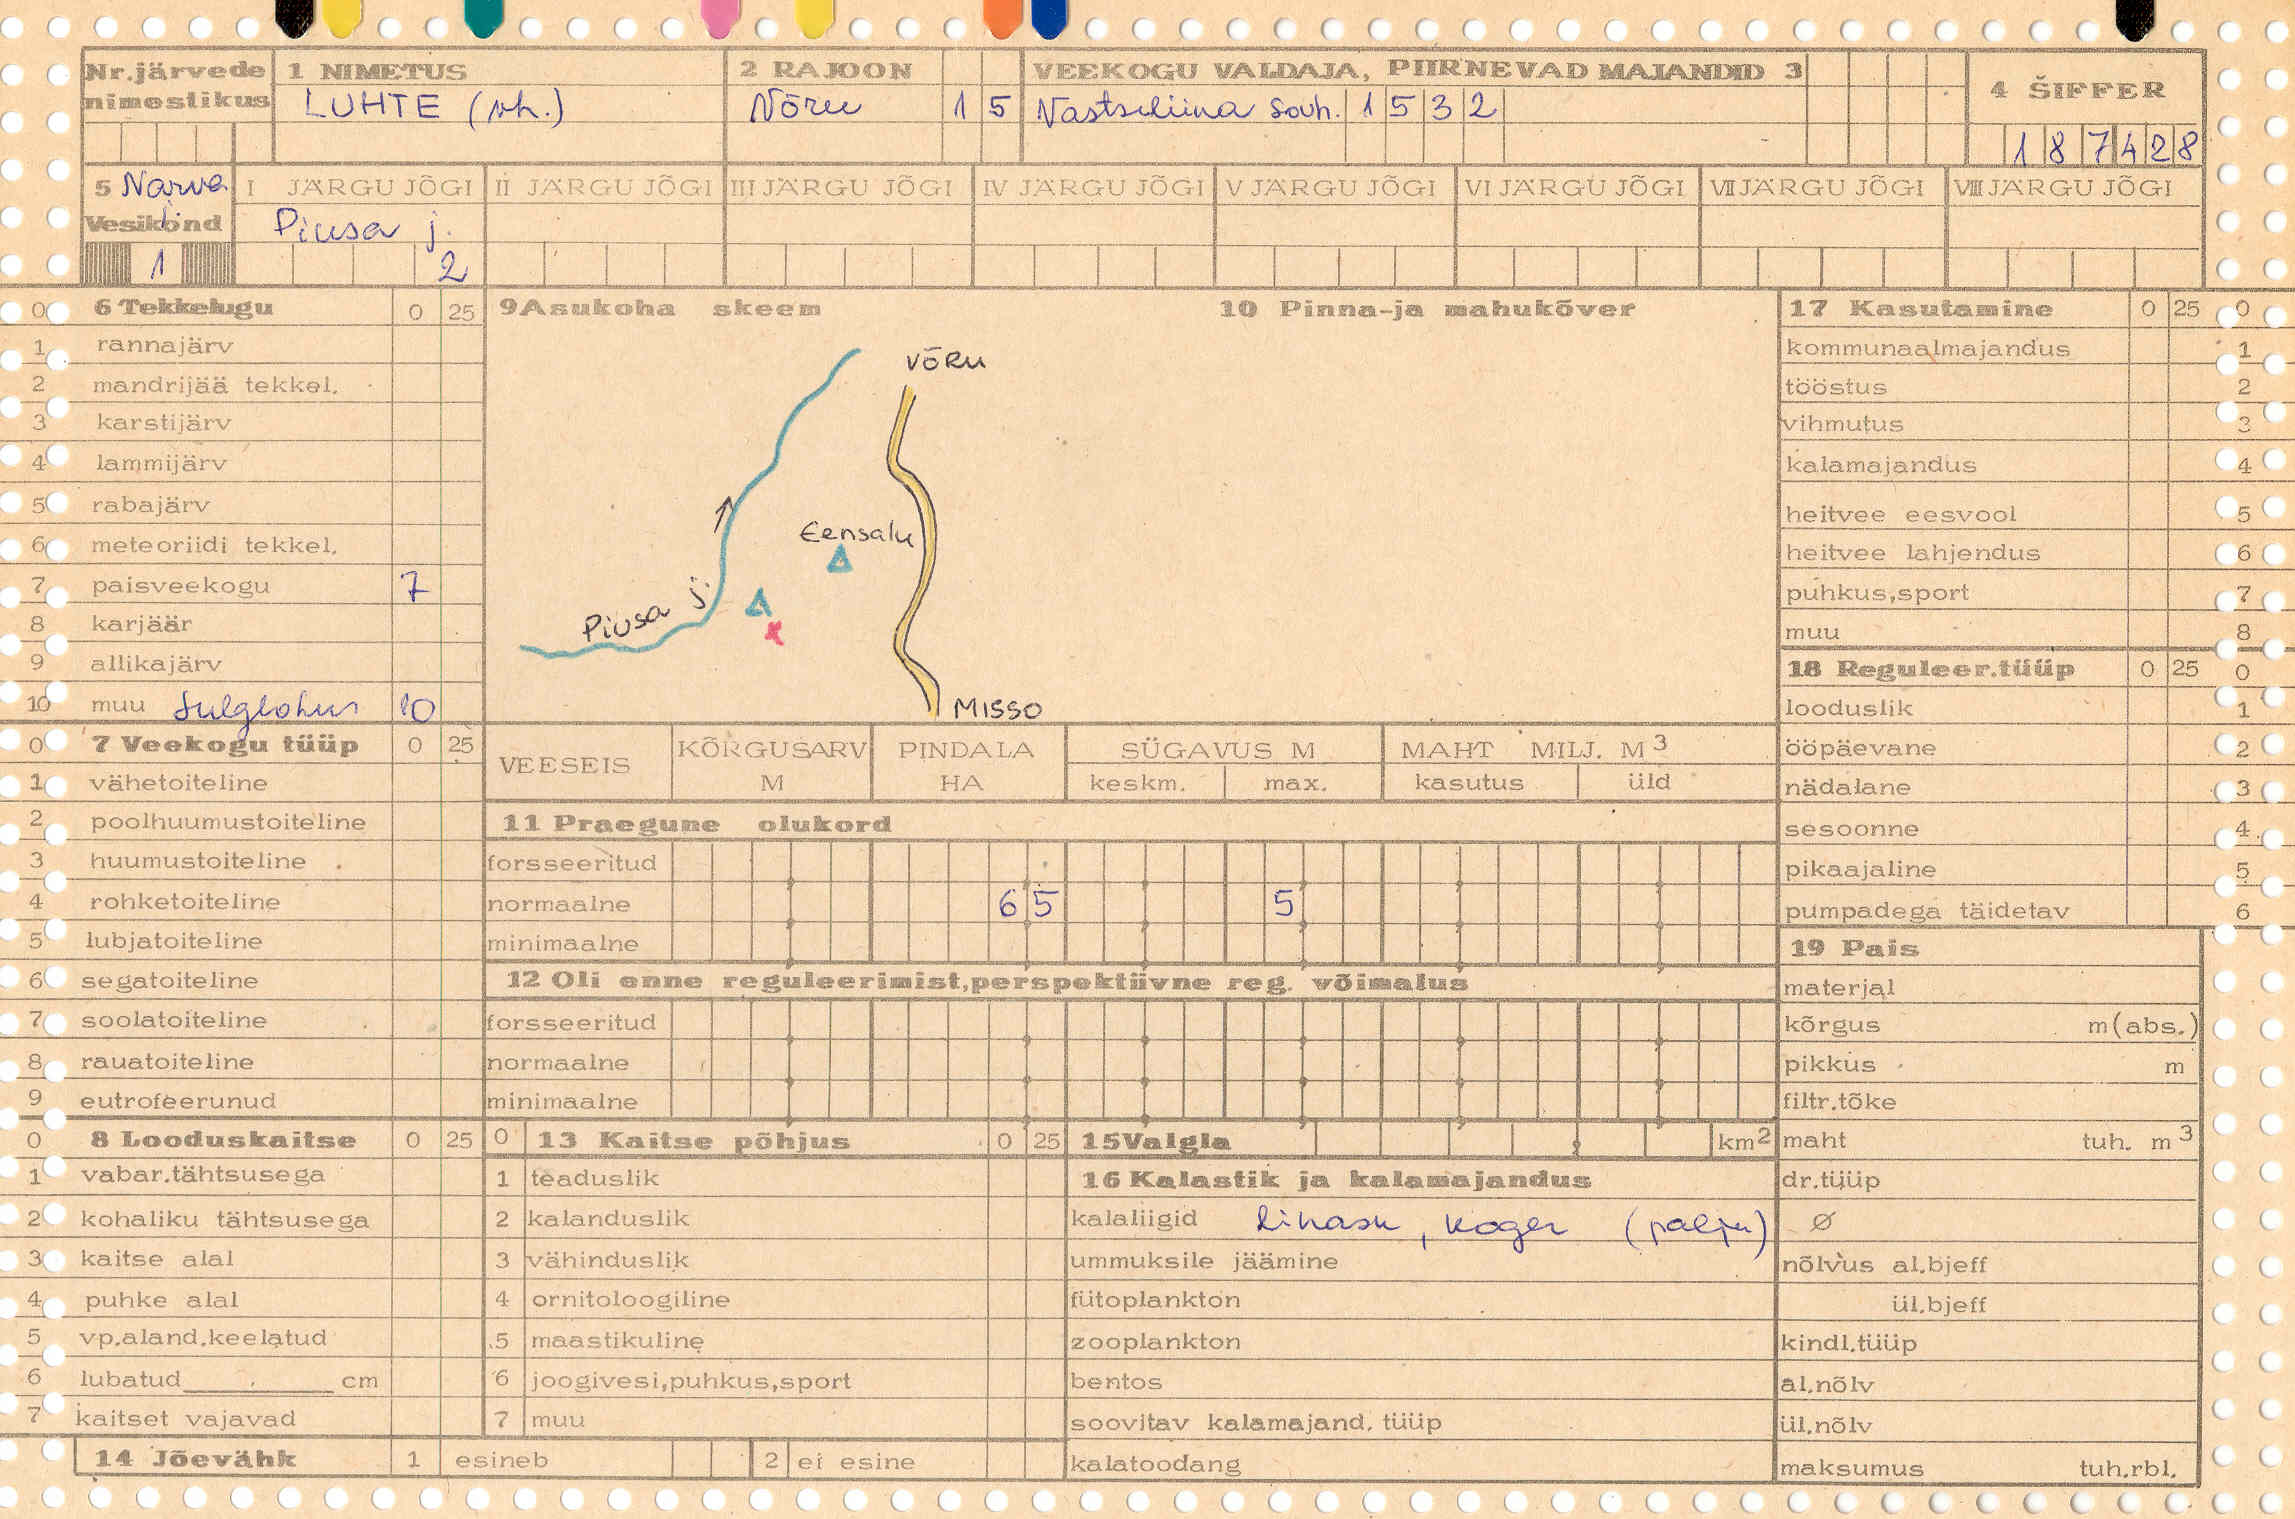 Nr.järvede nimestikus
1 NIMETUS
LUHTE (vh.)
2 RAJOON
Võru 1 5
VEEKOGU VALDAJA, PIIRNEVAD MAJANDID 3
Vastseliina sovh. 1 5 3 2
4 ŠIFFER
1 8 7 4 2 8
5 Narva
Vesikond
1
I JÄRGU JÕGI
Piusa j.
2
II JÄRGU JÕGI
III JÄRGU JÕGI
IV JÄRGU JÕGI
V JÄRGU JÕGI
VI JÄRGU JÕGI
VII JÄRGU JÕGI
VIII JÄRGU JÕGI
0 6 Tekkelugu 0 25
1 rannajärv
2 mandrijää tekkel.
3 karstijärv
4 lammijärv
5 rabajärv
6 meteoriidi tekkel.
7 paisveekogu 7
8 karjäär
9 allikajärv
10 muu Sulglohus 10
0 7 Veekogu tüüp 0 25
1 vähetoiteline
2 poolhuumustoiteline
3 huumustoiteline
4 rohketoiteline
5 lubjatoiteline
6 segatoiteline
7 soolatoiteline
8 rauatoiteline
9 eutrofeerunud
0 8 Looduskaitse 0 25
1 vabar.tähtsusega
2 kohaliku tähtsusega
3 kaitse alal
4 puhke alal
5 vp.aland.keelatud
6 lubatud______ cm
7 kaitset vajavad
14 Jõevähk 1 esineb 2 ei esine
9 Asukoha skeem
VÕRU
Eensalu
Piusa j.
MISSO
10 Pinna-ja mahukõver
VEESEIS
KÕRGUSARV M
PINDALA HA
SÜGAVUS M
keskm. max.
MAHT MILJ. M3
kasutus üld
11 Praegune olukord
forsseeritud
normaalne 6 5 5
minimaalne
12 Oli enne reguleerimist,perspektiivne reg. võimalus
forsseeritud
normaalne
minimaalne
0 13 Kaitse põhjus 0 25
1 teaduslik
2 kalanduslik
3 vähinduslik
4 ornitoloogiline
5 maastikuline
6 joogivesi,puhkus,sport
7 muu
15 Valgla km2
16 Kalastik ja kalamajandus
kalaliigid linask, koger (palju)
ummuksile jäämine
fütoplankton
zooplankton
bentos
soovitav kalamajand. tüüp
kalatoodang
17 Kasutamine 0 25 0
kommunaalmajandus 1
tööstus 2
vihmutus 3
kalamajandus 4
heitvee eesvool 5
heitvee lahjendus 6
puhkus,sport 7
muu 8
18 Reguleer.tüüp 0 25 0
looduslik 1
ööpäevane 2
nädalane 3
sesoonne 4
pikaajaline 5
pumpadega täidetav 6
19 Pais
materjal
kõrgus m(abs.)
pikkus m
filtr.tõke
maht tuh. m3
dr.tüüp
Ø
nõlvus al.bjeff
ül.bjeff
kindl.tüüp
al.nõlv
ül.nõlv
maksumus tuh.rbl.